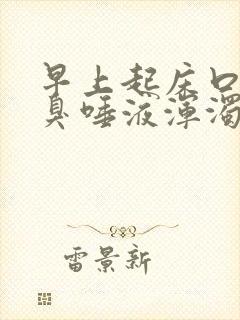 早上起床口
臭唾液浑浊
雷景新